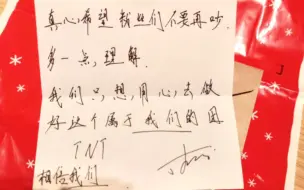 真心希望粉丝们不要再吵.
多一点,理解.
我们只,想,用心,去做
好这个属于我们的团
TNT
相信我们
J